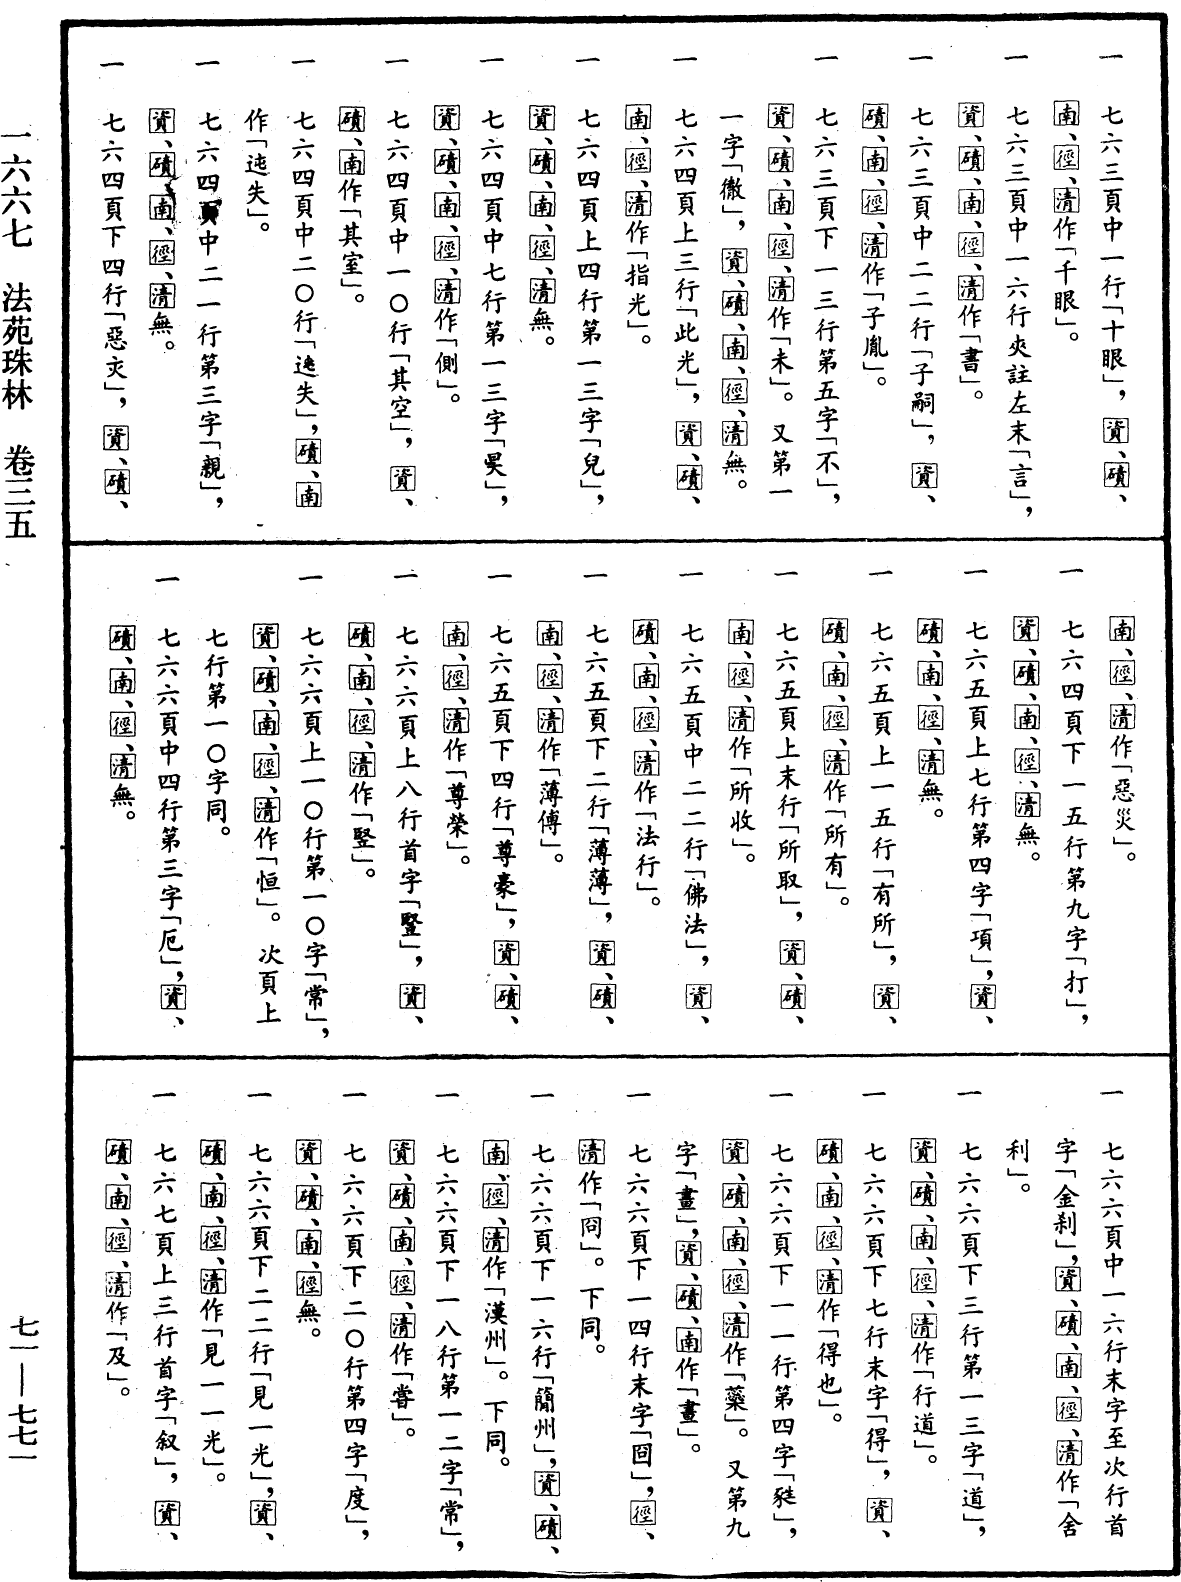 一 七六三頁中一行「十眼」，資、磧、
南、徑、清作「千眼」。
一 七六三頁中一六行夾註左末「言」，
資、磧、南、徑、清作「書」。
一 七六三頁中二二行「子嗣」，資、
磧、南、徑、清作「子胤」。
一 七六三頁下一三行第五字「不」，
資、磧、南、徑、清作「未」。又第一
一字「徹」，資、磧、南、徑、清無。
一 七六四頁上三行「此光」，資、磧、
南、徑、清作「指光」。
一 七六四頁上四行第一三字「兒」，
資、磧、南、徑、清無。
一 七六四頁中七行第一三字「昃」，
資、磧、南、徑、清作「側」。
一 七六四頁中一〇行「其空」，資、
磧、南作「其室」。
一 七六四頁中二〇行「逃失」，磧、南
作「迯失」。
一 七六四頁中二一行第三字「親」，
資、磧、南、徑、清無。
一 七六四頁下四行「惡灾」，資、磧、
南、徑、清作「惡災」。
一 七六四頁下一五行第九字「打」，
資、磧、南、徑、清無。
一 七六五頁上七行第四字「項」，資、
磧、南、徑、清無。
一 七六五頁上一五行「有所」，資、
磧、南、徑、清作「所有」。
一 七六五頁上末行「所取」，資、磧、
南、徑、清作「所收」。
一 七六五頁中二二行「佛法」，資、
磧、南、徑、清作「法行」。
一 七六五頁下二行「薄薄」，資、磧、
南、徑、清作「薄傅」。
一 七六五頁下四行「尊豪」，資、磧、
南、徑、清作「尊榮」。
一 七六六頁上八行首字「豎」，資、
磧、南、徑、清作「竪」。
一 七六六頁上一〇行第一〇字「常」，
資、磧、南、徑、清作「恒」。次頁上
七行第一〇字同。
一 七六六頁中四行第三字「厄」，資、
磧、南、徑、清無。
一 七六六頁中一六行末字至次行首
字「金刹」，資、磧、南、徑、清作「舍
利」。
一 七六六頁下三行第一三字「道」，
資、磧、南、徑、清作「行道」。
一 七六六頁下七行末字「得」，資、
磧、南、徑、清作「得也」。
一 七六六頁下一一行第四字「甤」，
資、磧、南、徑、清作「蘂」。又第九
字「畫」，資、磧、南作「畫」。
一 七六六頁下一四行末字「囙」，徑、
清作「冏」。下同。
一 七六六頁下一六行「簡州」，資、磧、
南、徑、清作「漢州」。下同。
一 七六六頁下一八行第一二字「常」，
資、磧、南、徑、清作「嘗」。
一 七六六頁下二〇行第四字「度」，
資、磧、南、徑無。
一 七六六頁下二二行「見一光」，資、
磧、南、徑、清作「見一一光」。
一 七六七頁上三行首字「叙」，資、
磧、南、徑、清作「及」。
一六六七 法苑珠林 卷三五
七一—七七一